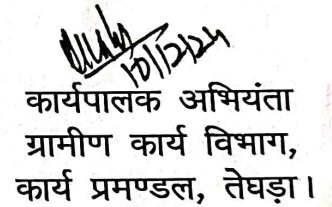 10/12/24
कार्यपालक अभियंता
ग्रामीण कार्य विभाग,
कार्य प्रमण्डल, तेघड़ा।